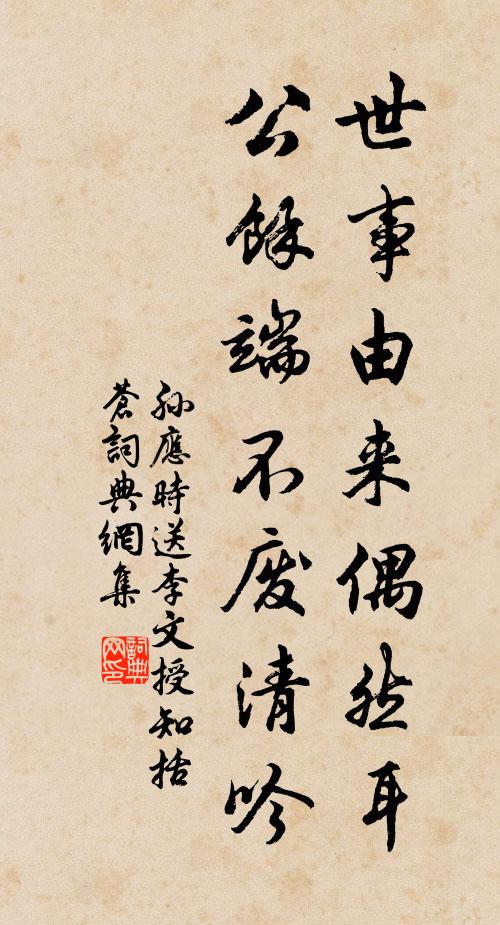 世事由来偶然耳
公餘端不废清吟
孙應時送李文授知括
蒼詞典網集
詞典
网印